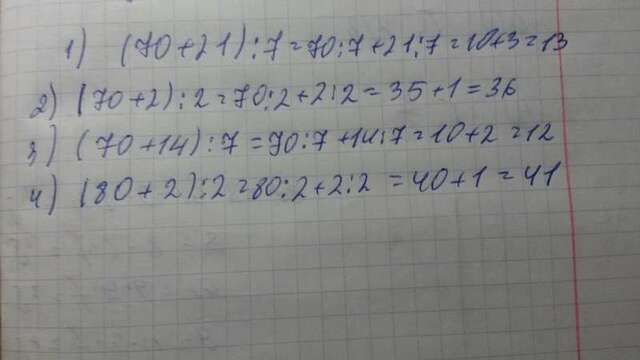 1) (70+21):7=70:7+21:7=10+3=13
2) (70+2):2=70:2+2:2=35+1=36
3) (70+14):7=70:7+14:7=10+2=12
4) (80+2):2=80:2+2:2=40+1=41